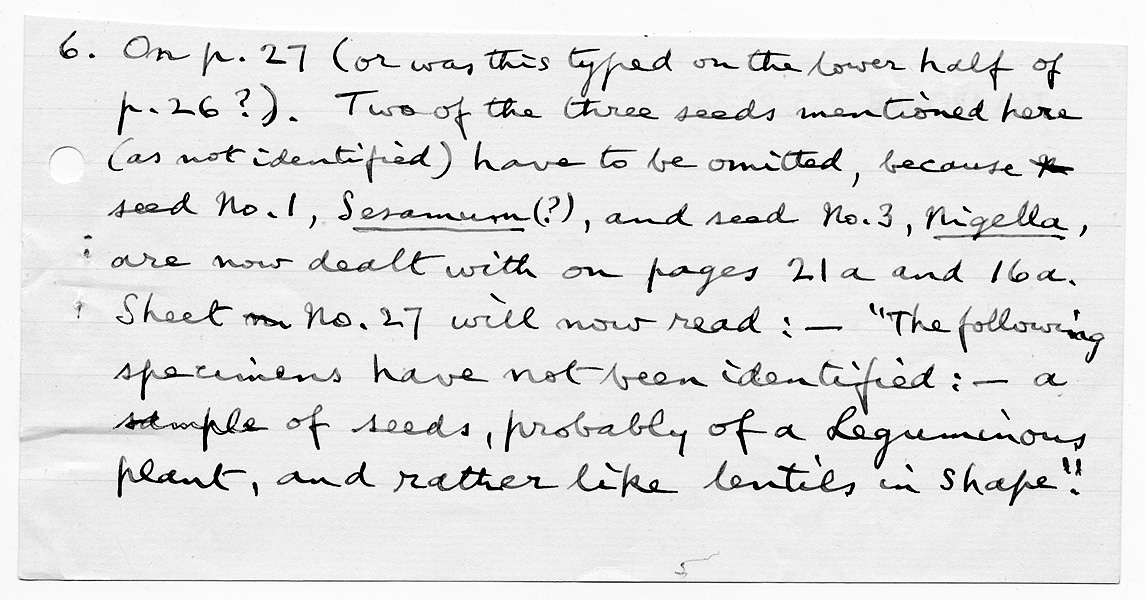 6. On p. 27 (or was this typed on the lower half of
p. 26?). Two of the three seeds mentioned here
(as not identified) have to be omitted, because
seed No. 1, Sesamum(?), and seed No. 3, Nigella,
are now dealt with on pages 21a and 16a.
Sheet No. 27 will now read :— "The following
specimens have not been identified :— a
sample of seeds, probably of a Leguminous
plant, and rather like lentils in shape".
5